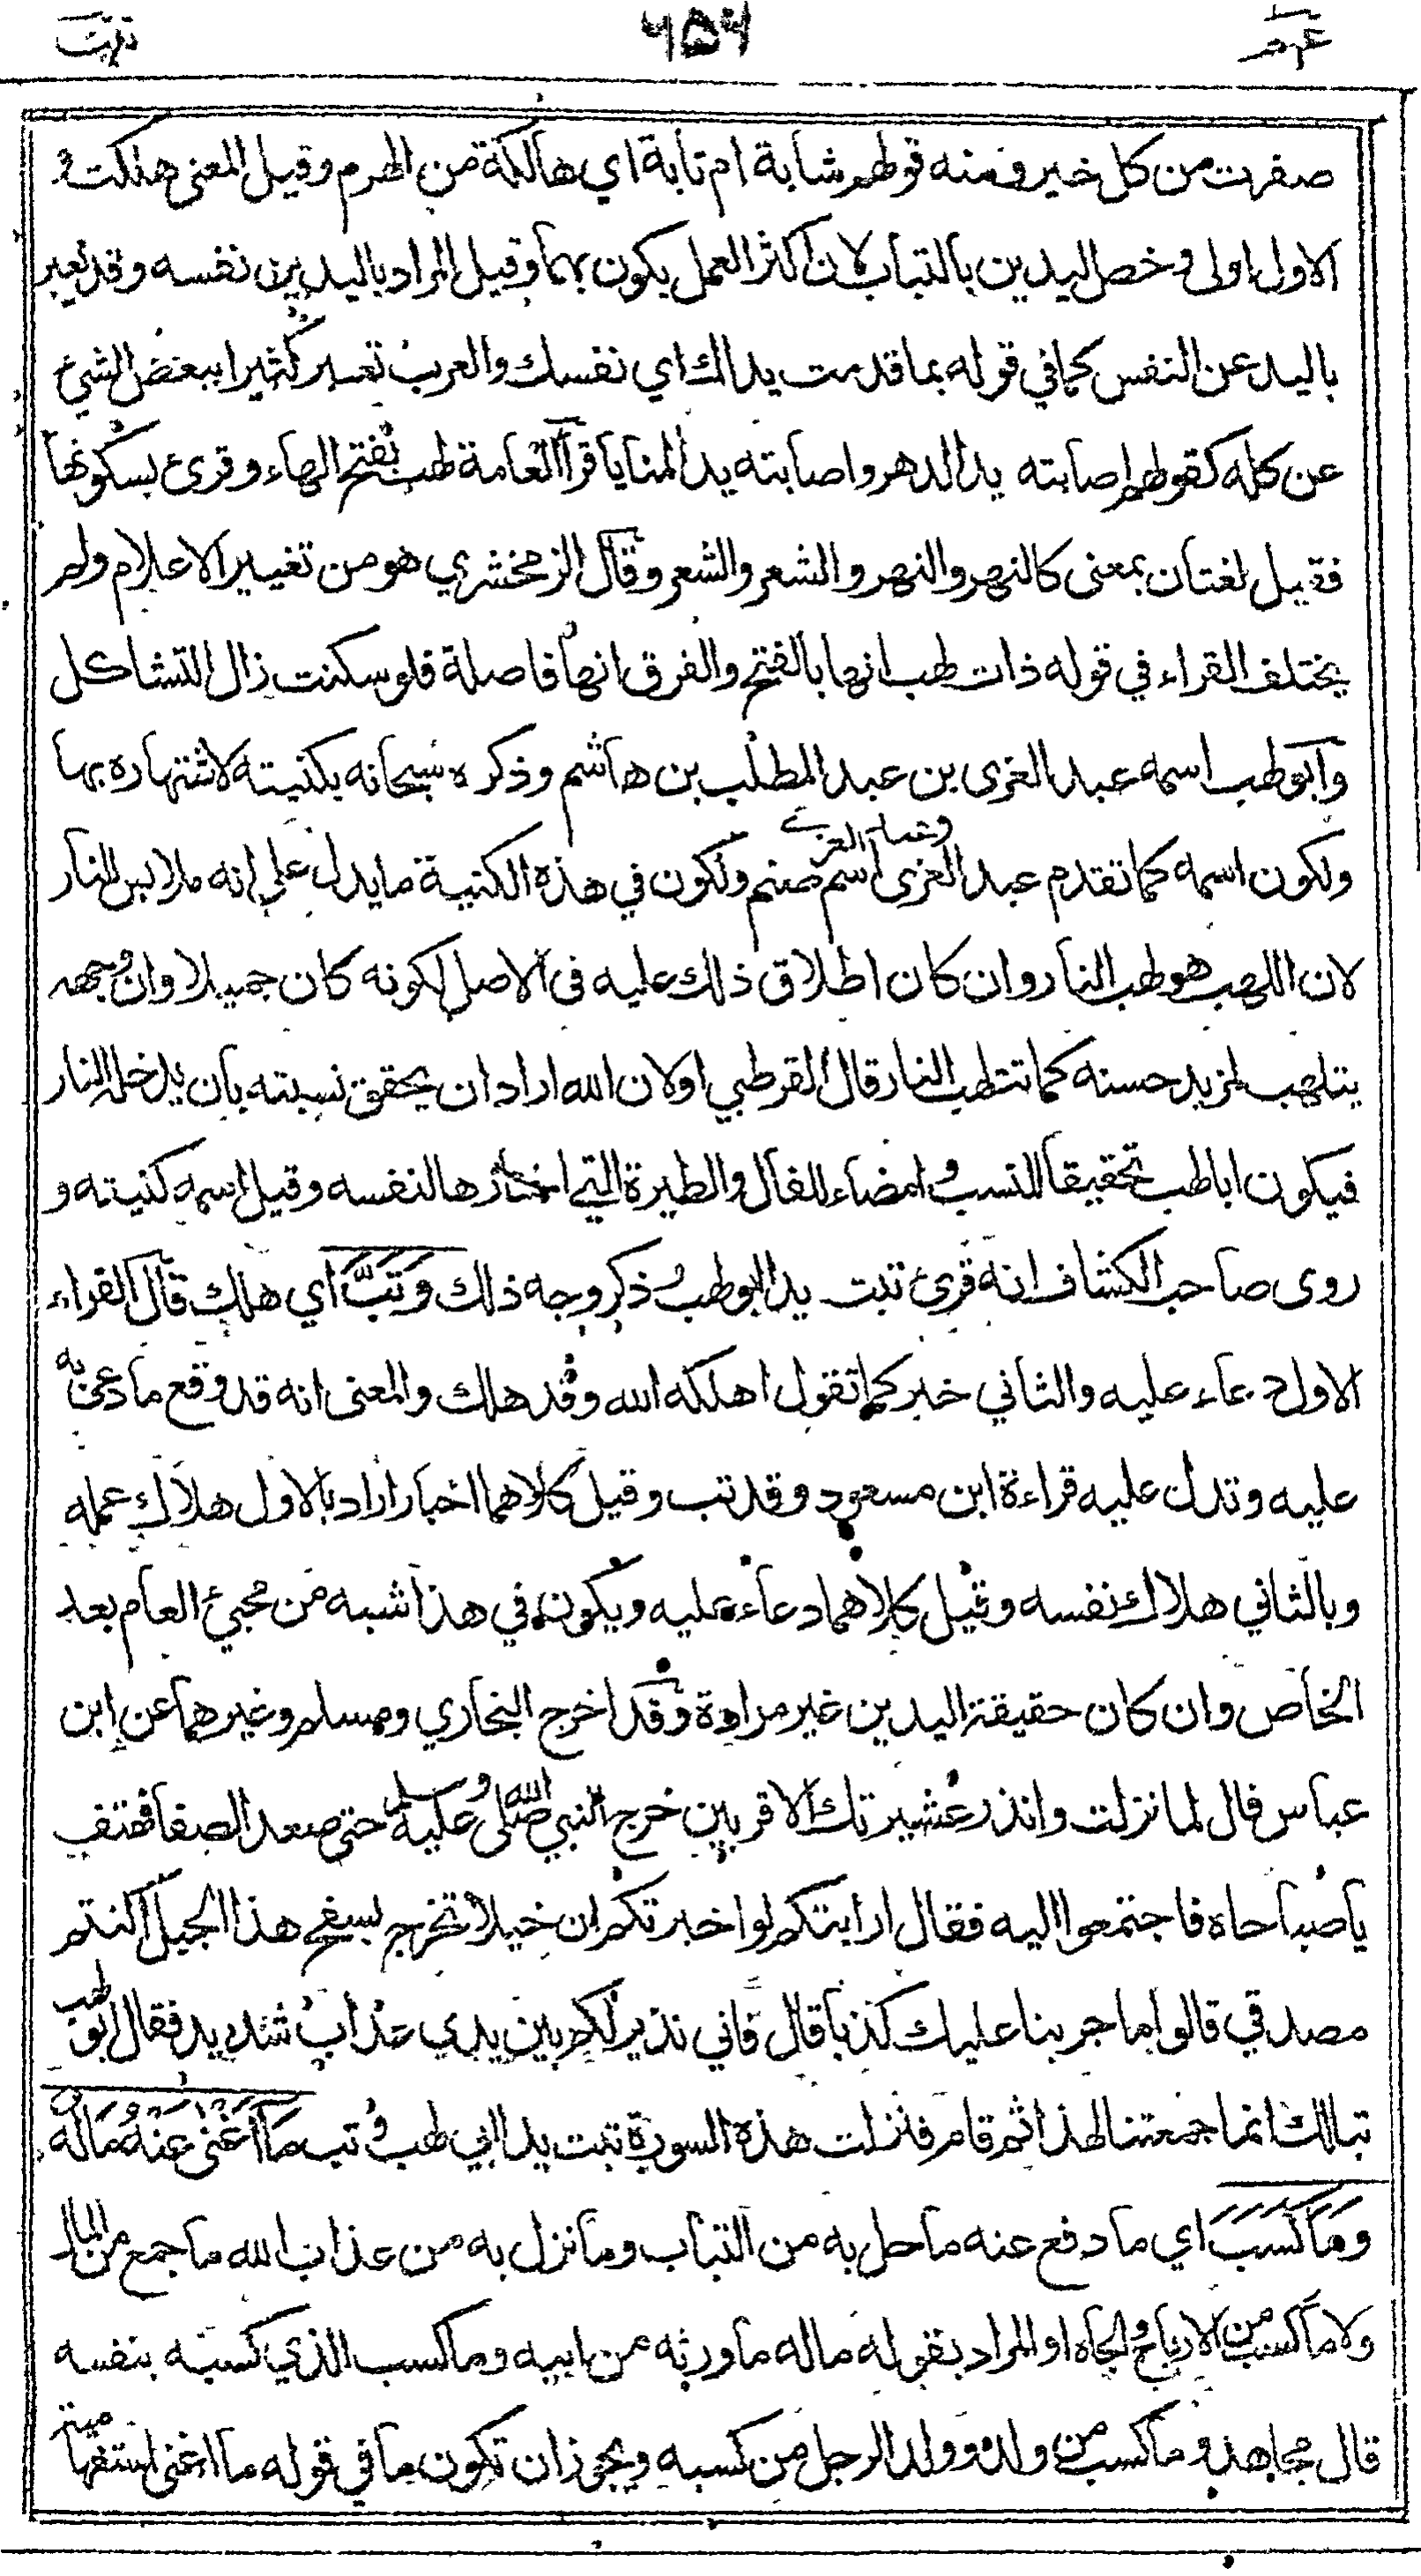 عم
٤٥٦
تبت
صفرت من كل خير ومنه قولهم شابة ام تابة اي هالكة من الهرم وقيل المعنى هلكت و
الاول اولى وخص اليدين بالتباب لان اكثر العمل يكون بهما وقيل المراد باليدين نفسه وقد يعبر
باليد عن النفس كما في قوله بما قدمت يداك اي نفسك والعرب تعبر كثيرا ببعض الشئ
عن كله كقولهم اصابته يد الدهر واصابته يد المنايا قرأ العامة لهب بفتح الهاء وقرئ بسكونها
فقيل لغتان بمعنى كالنهر والنهر والشعر والشعر وقال الزمخشري هو من تغيير الاعلام ولم
يختلف القراء في قوله ذات لهب انها بالفتح والفرق انها فاصلة فلو سكنت زال التشاكل
وابو لهب اسمه عبد العزى بن عبد المطلب بن هاشم وذكره سبحانه بكنيته لاشتهاره بها
ولكون اسمه كما تقدم عبد العزى اسم صنم ولكون في هذه الكنية ما يدل على انه ملابس للنار
لان اللهب هو لهب النار وان كان اطلاق ذلك عليه في الاصل لكونه كان جميلا وان وجهه
يتلهب لمزيد حسنه كما تتلهب النار قال القرطبي اولان الله اراد ان يحقق نسبته بان يدخله النار
فيكون ابا لهب تحقيقا للنسب وامضاء للفال والطيرة التي اختارها لنفسه وقيل اسمه كنيته و
روى صاحب الكشاف انه قرئ تبت يدا ابو لهب وذكر وجه ذلك وَتَبَّ اي هلك قال الفراء
الاول دعاء عليه والثاني خبر كما تقول اهلكه الله وقد هلك والمعنى انه قد وقع ما دعى به
عليه وتدل عليه قراءة ابن مسعود وقد تب وقيل كلاهما اخبار اراد بالاول هلاك عمله
وبالثاني هلاك نفسه وقيل كلاهما دعاء عليه ويكون في هذا شبه من مجئ العام بعد
الخاص وان كان حقيقة اليدين غير مرادة وقد اخرج البخاري ومسلم وغيرهما عن ابن
عباس قال لما نزلت وانذر عشيرتك الاقربين خرج النبي صلى الله عليه وسلم حتى صعد الصفا فهتف
يا صباحاه فاجتمعوا اليه فقال ارايتكم لو اخبرتكم ان خيلا تخرج بسفح هذا الجبل اكنتم
مصدقي قالوا ما جربنا عليك كذبا قال فاني نذير لكم بين يدي عذاب شديد فقال ابو لهب
تبا لك انما جمعتنا لهذا ثم قام فنزلت هذه السورة تبت يدا ابي لهب وتب مَا أَغْنَى عَنْهُ مَالُهُ
وَمَا كَسَبَ اي ما دفع عنه ما حل به من التباب وما نزل به من عذاب الله ما جمع من المال
ولا ما كسب من الارباح والجاه او المراد بقوله ماله ما ورثه من ابيه وما كسب الذي كسبه بنفسه
قال مجاهد وما كسب من ولد وولد الرجل من كسبه ويجوز ان تكون ما في قوله ما اغنى استفهامية